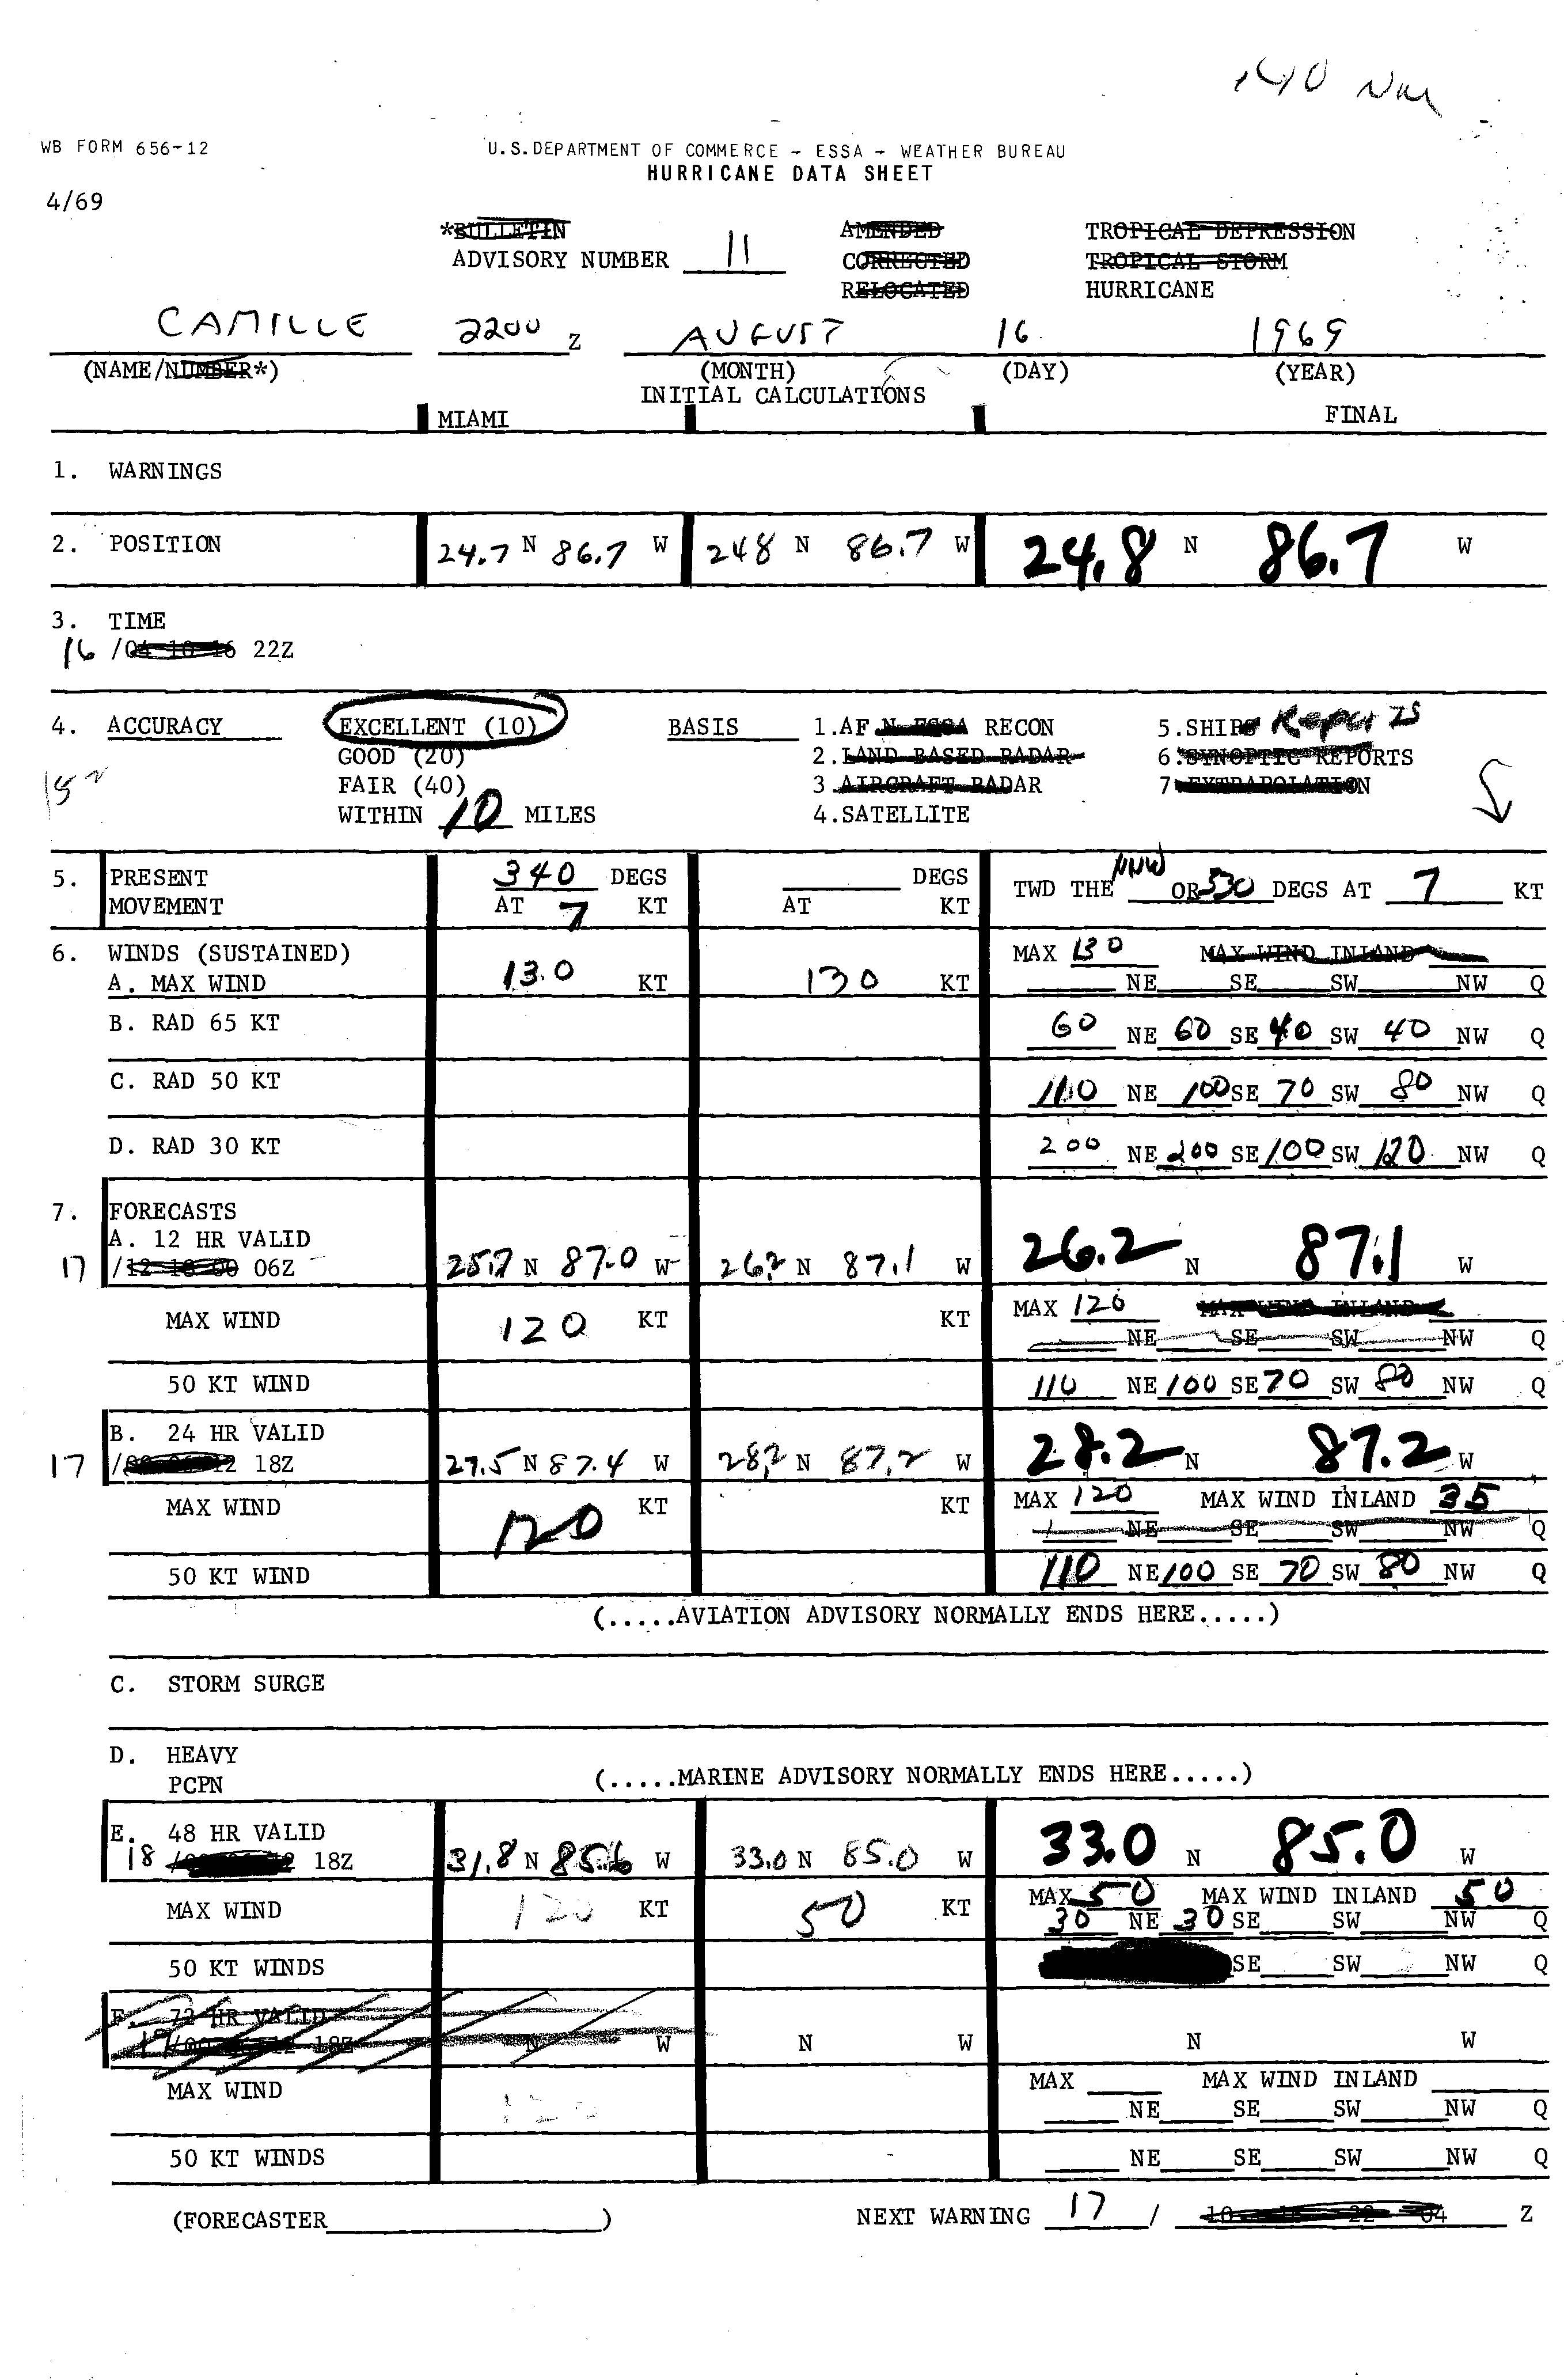 140 NM
WB FORM 656-12
U.S.DEPARTMENT OF COMMERCE - ESSA - WEATHER BUREAU
HURRICANE DATA SHEET
4/69
*BULLETIN AMENDED TROPICAL DEPRESSION
ADVISORY NUMBER 11 CORRECTED TROPICAL STORM
RELOCATED HURRICANE
CAMILLE 2200 Z AUGUST 16 1969
(NAME/NUMBER*) (MONTH) (DAY) (YEAR)
INITIAL CALCULATIONS
MIAMI FINAL
1. WARNINGS
2. POSITION 24.7 N 86.7 W 248 N 86.7 W 24.8 N 86.7 W
3. TIME
16 /04 10 16 22Z
4. ACCURACY EXCELLENT (10) BASIS 1.AF N ESSA RECON 5.SHIPS Reports
GOOD (20) 2.LAND BASED RADAR 6.SYNOPTIC REPORTS
FAIR (40) 3 AIRCRAFT RADAR 7 EXTRAPOLATION
WITHIN 10 MILES 4.SATELLITE
5. PRESENT 340 DEGS DEGS TWD THE NNW OR 330 DEGS AT 7 KT
MOVEMENT AT 7 KT AT KT
6. WINDS (SUSTAINED) MAX 130 MAX WIND INLAND
A. MAX WIND 130 KT 130 KT NE SE SW NW Q
B. RAD 65 KT 60 NE 60 SE 40 SW 40 NW Q
C. RAD 50 KT 110 NE 100 SE 70 SW 80 NW Q
D. RAD 30 KT 200 NE 200 SE 100 SW 120 NW Q
7. FORECASTS
A. 12 HR VALID
17 /12 18 00 06Z 25.7 N 87.0 W 26.2 N 87.1 W 26.2 N 87.1 W
MAX WIND 120 KT KT MAX 120 MAX WIND INLAND
NE SE SW NW Q
50 KT WIND 110 NE 100 SE 70 SW 80 NW Q
B. 24 HR VALID
17 / 12 18Z 27.5 N 87.4 W 28.2 N 87.2 W 28.2 N 87.2 W
MAX WIND 120 KT KT MAX 120 MAX WIND INLAND 35
NE SE SW NW Q
50 KT WIND 110 NE 100 SE 70 SW 80 NW Q
(.....AVIATION ADVISORY NORMALLY ENDS HERE.....)
C. STORM SURGE
D. HEAVY
PCPN (.....MARINE ADVISORY NORMALLY ENDS HERE.....)
E. 48 HR VALID
18 / 18Z 31.8 N 85.6 W 33.0 N 85.0 W 33.0 N 85.0 W
MAX WIND 120 KT 50 KT MAX 50 MAX WIND INLAND 50
30 NE 30 SE SW NW Q
50 KT WINDS SE SW NW Q
F. 72 HR VALID
18Z N W N W N W
MAX WIND 120 MAX MAX WIND INLAND
NE SE SW NW Q
50 KT WINDS NE SE SW NW Q
(FORECASTER ) NEXT WARNING 17 / 10 22 04 Z